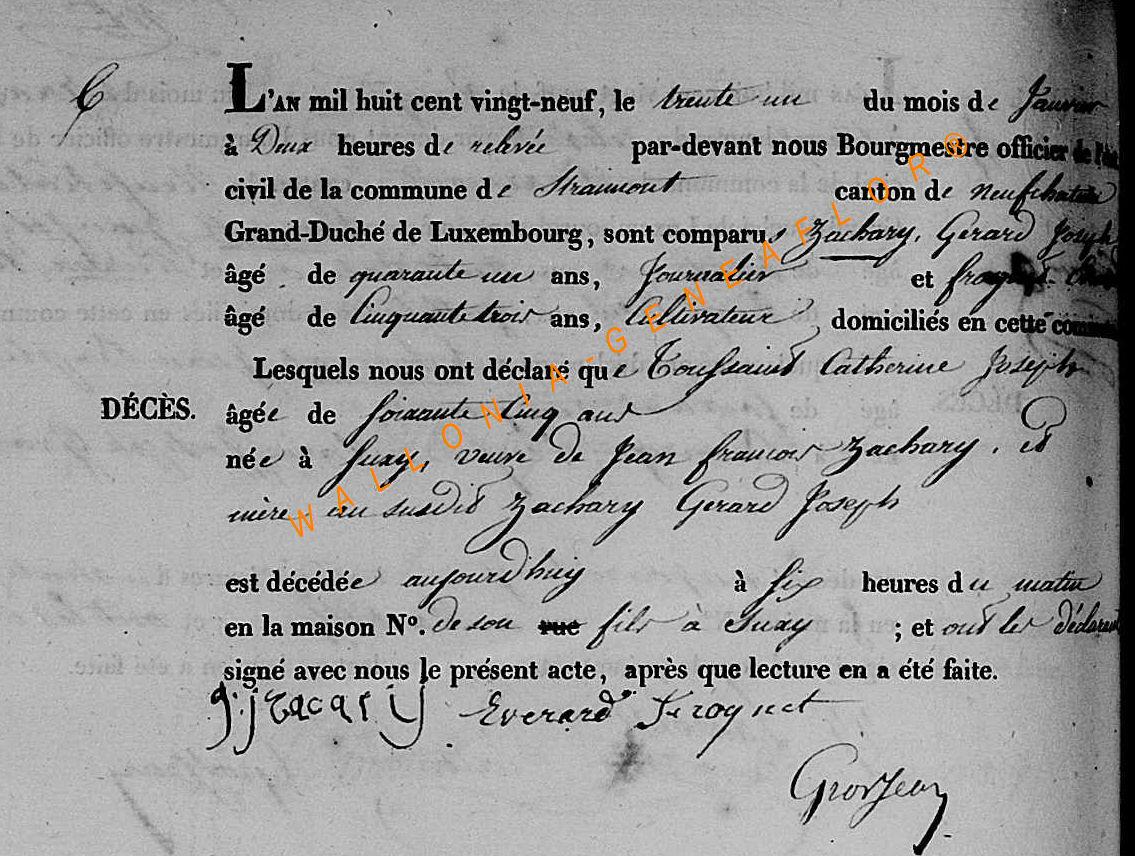 C
L'AN mil huit cent vingt-neuf, le trente un du mois de Janvier
à Deux heures de relevée par-devant nous Bourgmestre officier de l'état
civil de la commune de Straimont canton de neufchateau
Grand-Duché de Luxembourg, sont comparus Zachary, Gerard Joseph
âgé de quarante un ans, Journalier et
âgé de Cinquante trois ans, Cultivateur, domiciliés en cette commune
Lesquels nous ont déclaré que Toussaint Catherine Joseph
DÉCÈS. âgée de soixante Cinq ans
née à Suxy, veuve de Jean francois Zachary, et
mère au susdit Zachary Gerard Joseph
est décédée aujourd'huy à six heures du matin
en la maison N°. de son rue fils à Suxy ; et ont les déclarants
signé avec nous le présent acte, après que lecture en a été faite.
g j zacarij Everard Froquet
Grosjean
WALLONIA-GENEAFLOR®